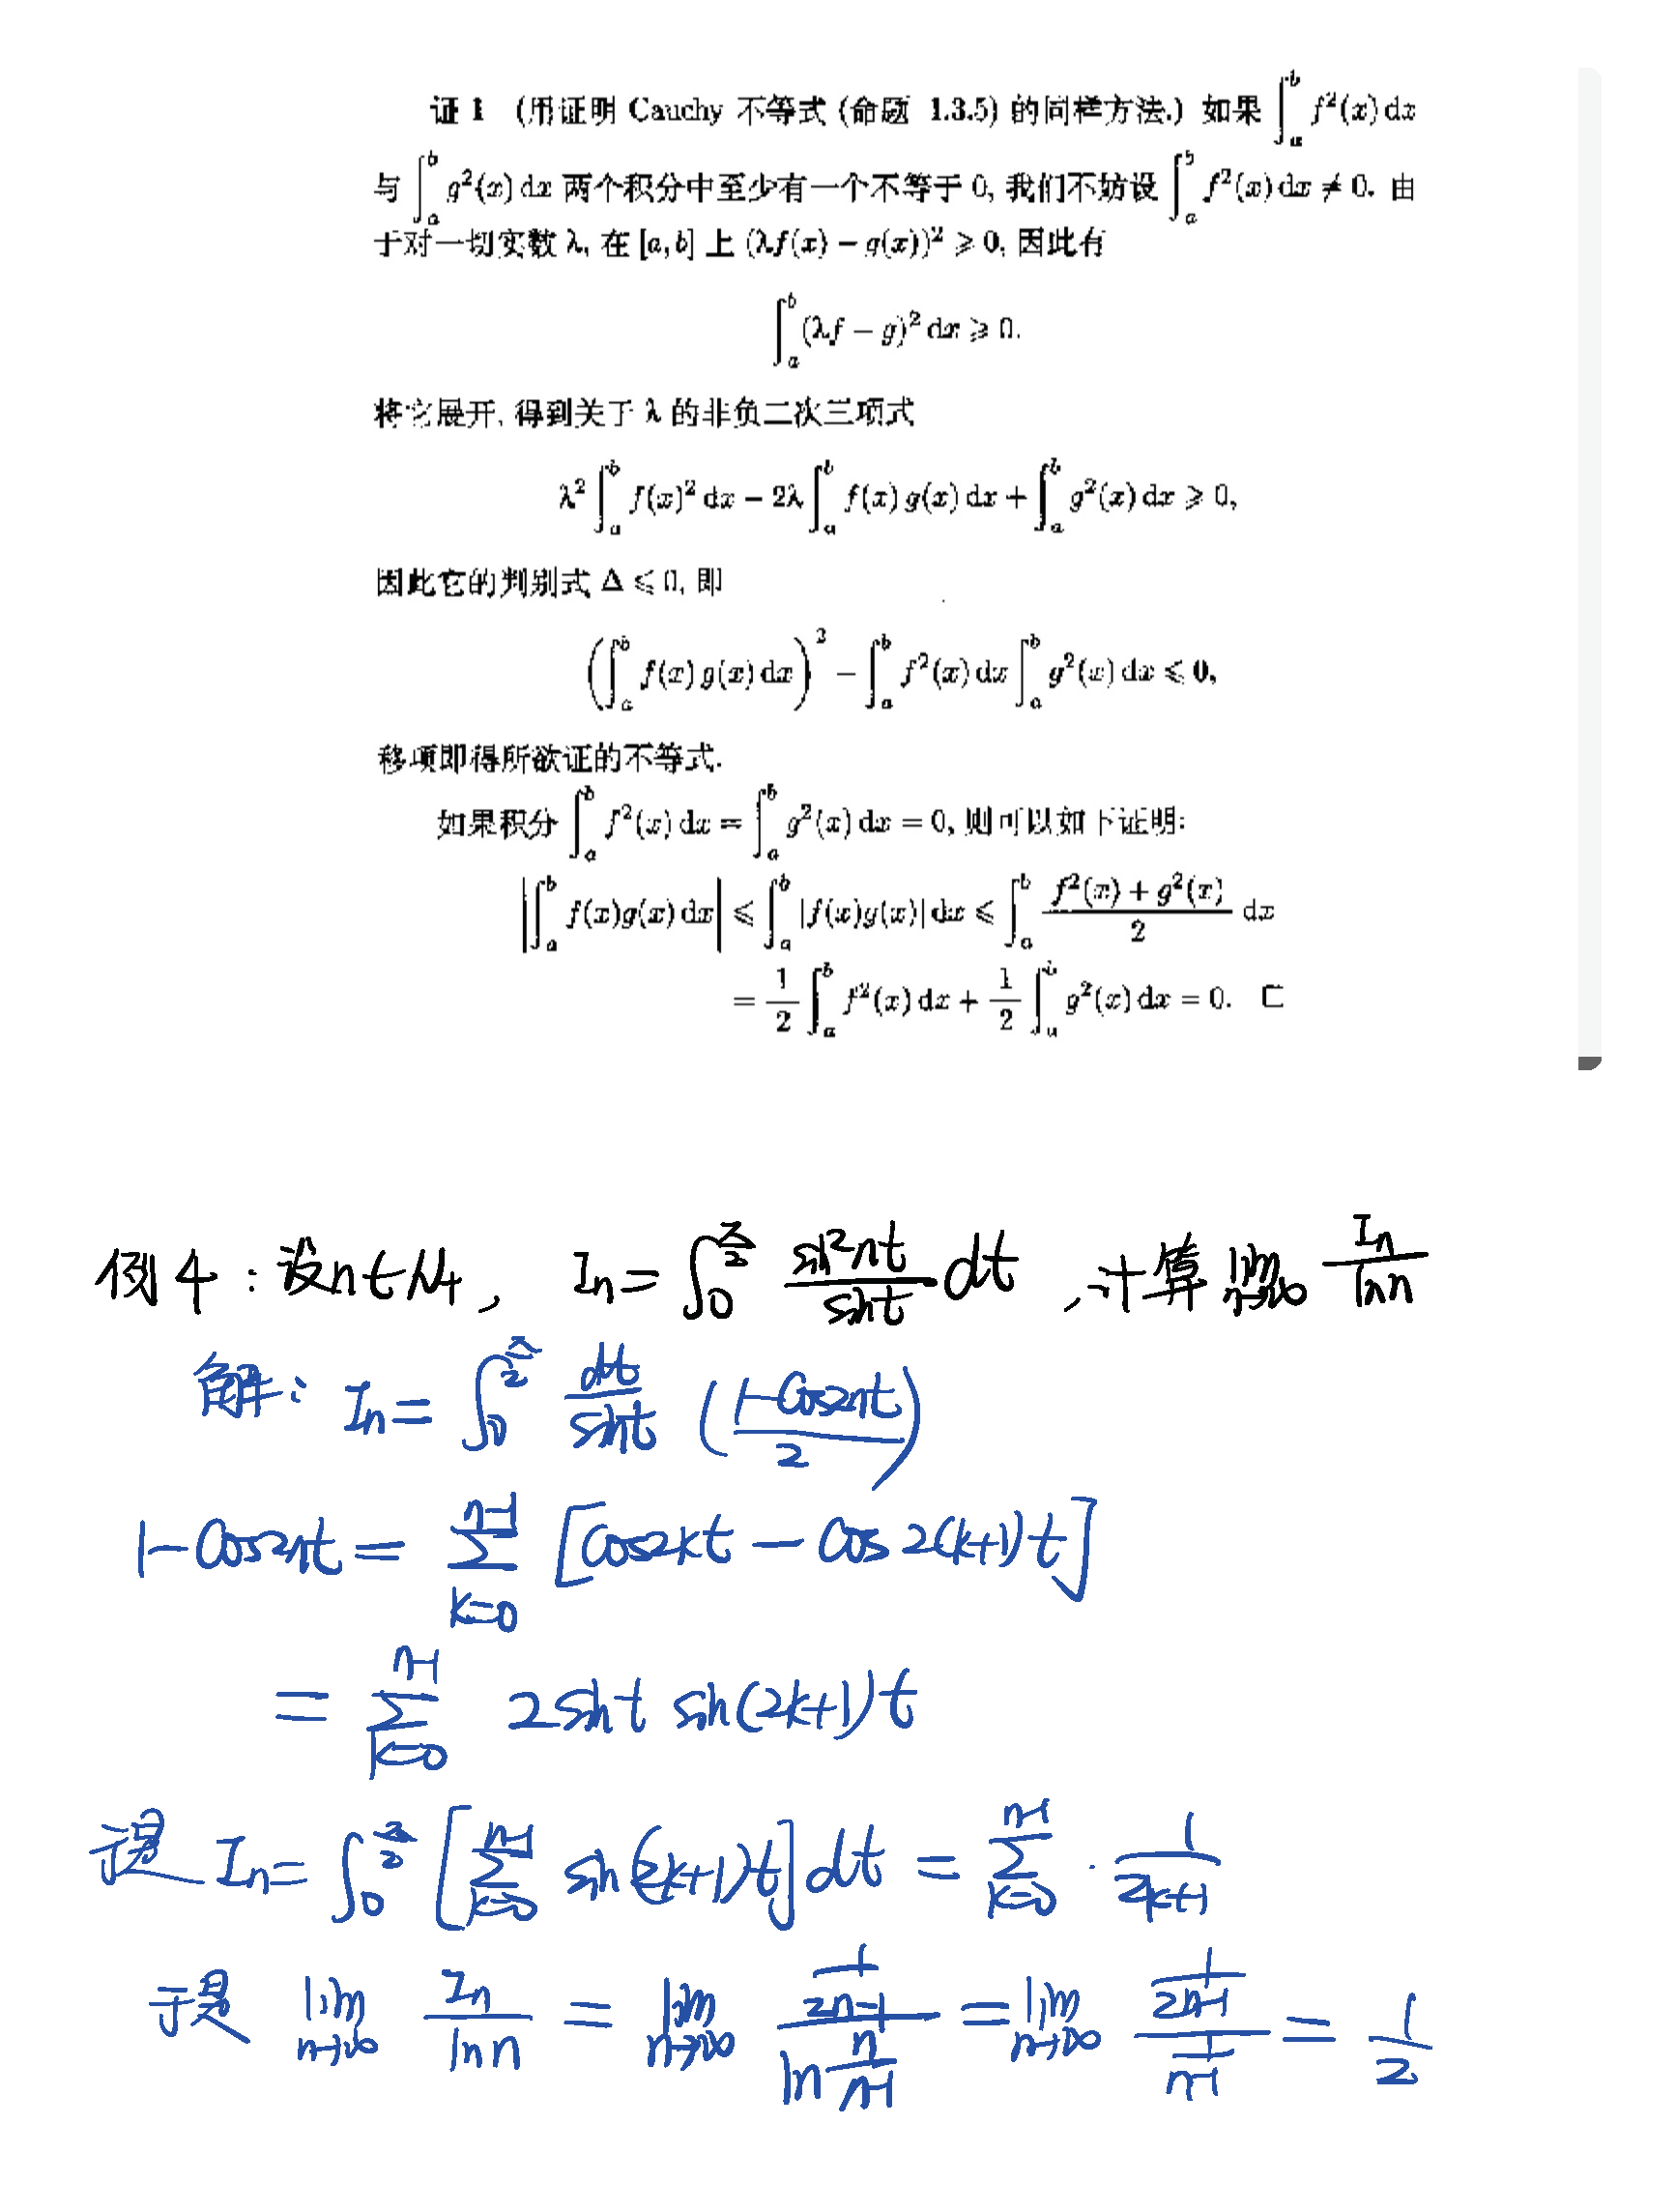 证 1 (用证明 Cauchy 不等式 (命题 1.3.5) 的同样方法.) 如果 $\int_a^b f^2(x)\,dx$
与 $\int_a^b g^2(x)\,dx$ 两个积分中至少有一个不等于 0, 我们不妨设 $\int_a^b f^2(x)\,dx \neq 0$. 由
于对一切实数 λ, 在 [a, b] 上 $(\lambda f(x) - g(x))^2 \geqslant 0$, 因此有
$\int_a^b (\lambda f - g)^2\,dx \geqslant 0.$
将它展开, 得到关于 λ 的非负二次三项式
$\lambda^2 \int_a^b f(x)^2\,dx - 2\lambda \int_a^b f(x)\,g(x)\,dx + \int_a^b g^2(x)\,dx \geqslant 0,$
因此它的判别式 $\Delta \leqslant 0$, 即
$\left(\int_a^b f(x)\,g(x)\,dx\right)^2 - \int_a^b f^2(x)\,dx \int_a^b g^2(x)\,dx \leqslant 0,$
移项即得所欲证的不等式.
如果积分 $\int_a^b f^2(x)\,dx = \int_a^b g^2(x)\,dx = 0$, 则可以如下证明:
$\left|\int_a^b f(x)g(x)\,dx\right| \leqslant \int_a^b |f(x)g(x)|\,dx \leqslant \int_a^b \frac{f^2(x) + g^2(x)}{2}\,dx$
$= \frac{1}{2}\int_a^b f^2(x)\,dx + \frac{1}{2}\int_a^b g^2(x)\,dx = 0.$ □
例4:设 $n \in N_+$, $I_n = \int_0^{\frac{\pi}{2}} \frac{\sin^2 nt}{\sin t} dt$,计算 $\lim_{n\to\infty} \frac{I_n}{\ln n}$
解: $I_n = \int_0^{\frac{\pi}{2}} \frac{dt}{\sin t} \left(\frac{1-\cos 2nt}{2}\right)$
$1-\cos 2nt = \sum_{k=0}^{n-1} [\cos 2kt - \cos 2(k+1)t]$
$= \sum_{k=0}^{n-1} 2\sin t \sin(2k+1)t$
于是 $I_n = \int_0^{\frac{\pi}{2}} \left[\sum_{k=0}^{n-1} \sin(2k+1)t\right] dt = \sum_{k=0}^{n-1} \cdot \frac{1}{2k+1}$
于是 $\lim_{n\to\infty} \frac{I_n}{\ln n} = \lim_{n\to\infty} \frac{\frac{1}{2n-1}}{\ln \frac{n}{n-1}} = \lim_{n\to\infty} \frac{\frac{1}{2n-1}}{\frac{1}{n-1}} = \frac{1}{2}$